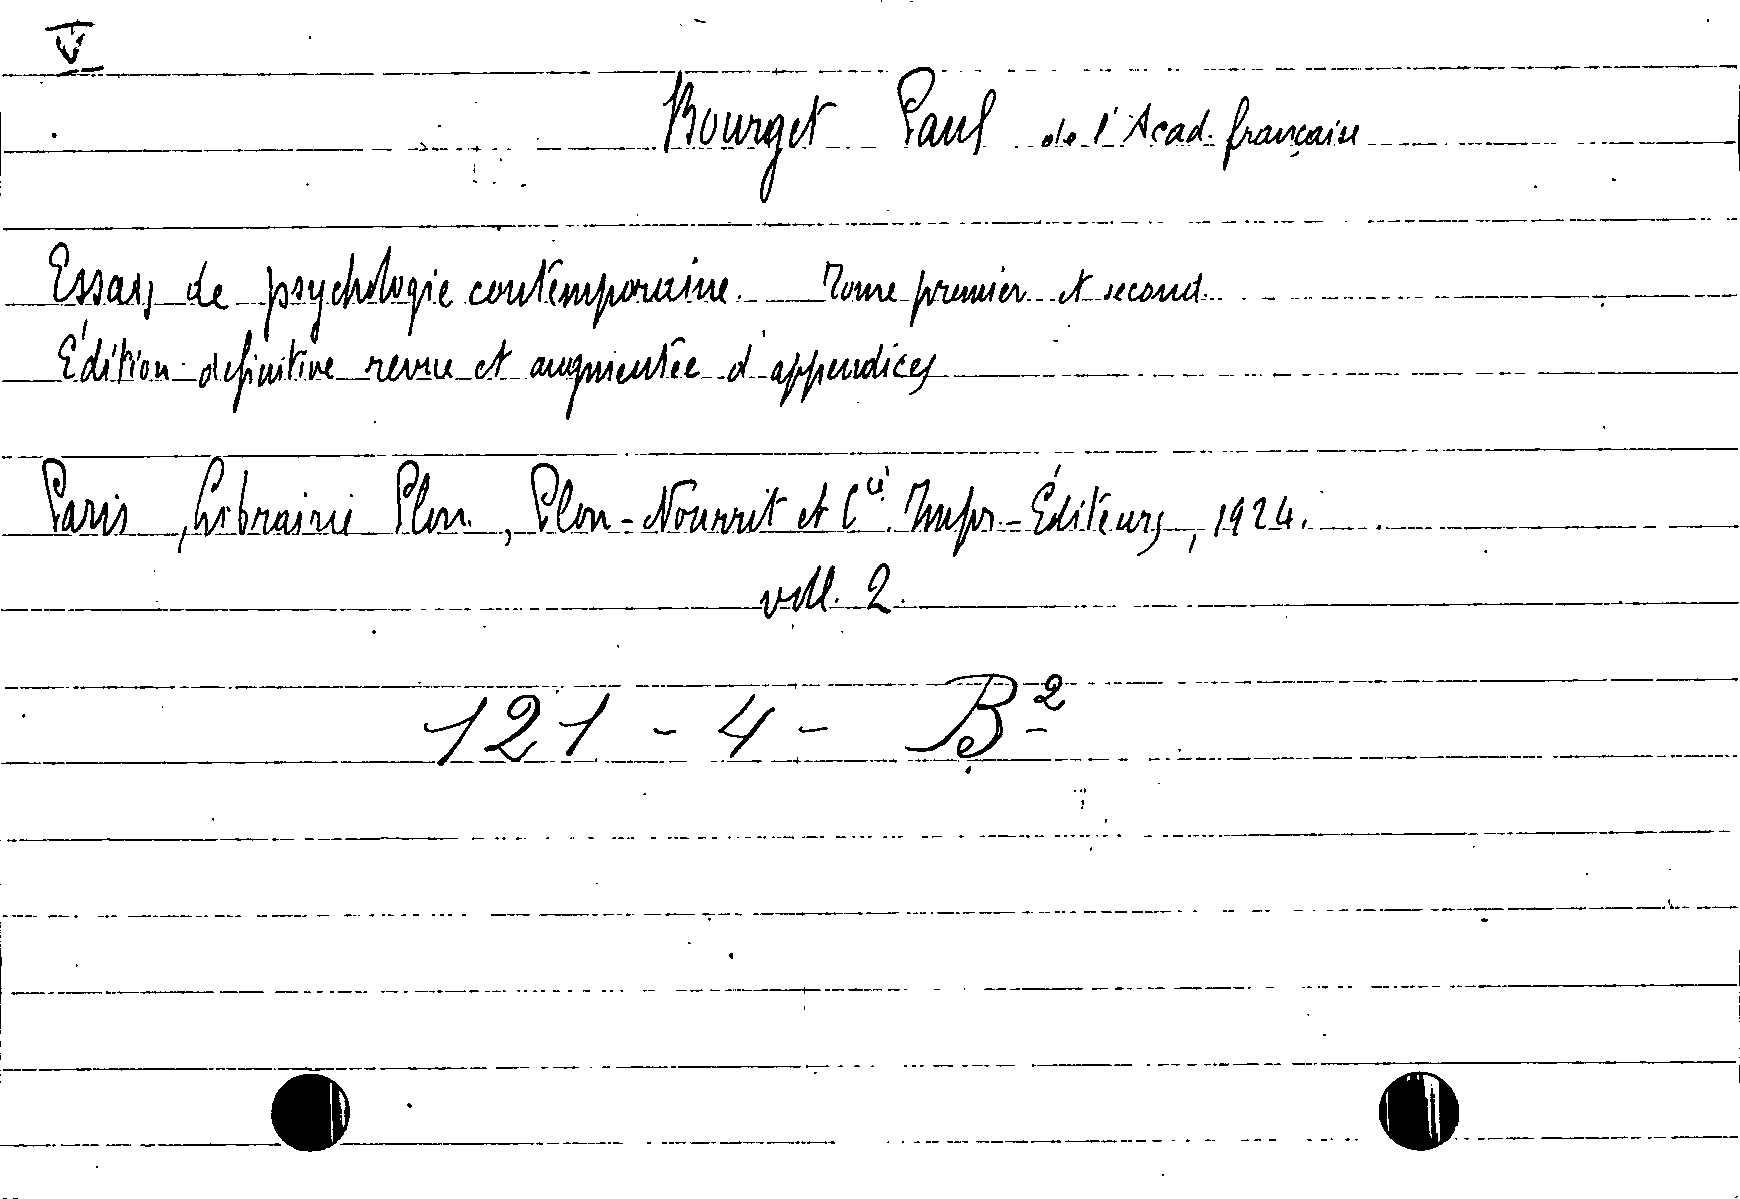 V
Bourget Paul de l'Acad. française
Essais de psychologie contemporaine. Tome premier et second.
Édition definitive revue et augmentée d'appendices
Paris, Librairie Plon, Plon-Nourrit et Cie Impr-Éditeurs, 1924.
voll. 2.
121 - 4 - B²